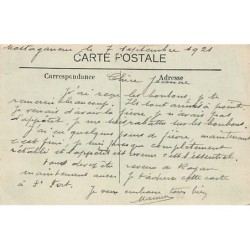 Mostaganem le 7 Septembre 1921
CARTE POSTALE
Correspondance Adresse
Chère Jeanne
J'ai reçu les bonbons, je te
remercie beaucoup. Ils sont arrivés à point
je venais d'avoir la fièvre, je n'avais pas
d'appétit, je me sur les bonbons.
J'ai eu quelques jours de fièvre maintenant
c'est fini, je suis presque complètement
rétabli et l'appétit est revenu c'est l'essentiel.
revenu à
maintenant J'achève cette carte
à
Je vous embrasse tous bien